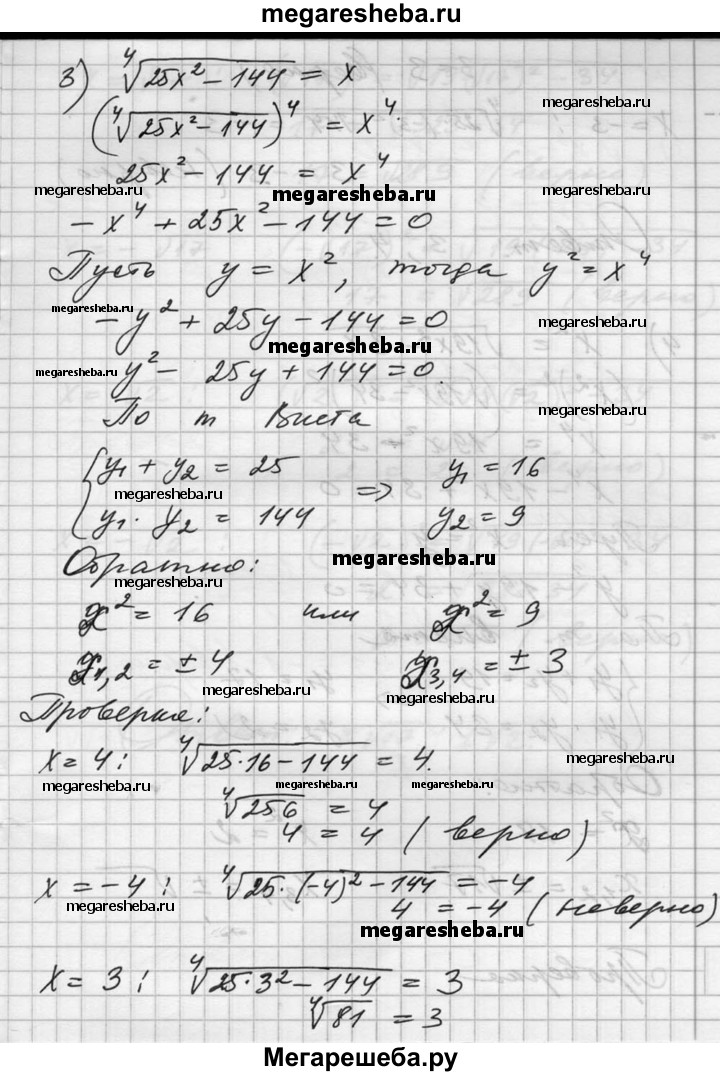 megaresheba.ru
3) ⁴√(25x² − 144) = x
(⁴√(25x² − 144))⁴ = x⁴.
megaresheba.ru
25x² − 144 = x⁴
megaresheba.ru megaresheba.ru megaresheba.ru
− x⁴ + 25x² − 144 = 0
Пусть y = x², тогда y² = x⁴
megaresheba.ru
− y² + 25y − 144 = 0
megaresheba.ru megaresheba.ru
megaresheba.ru
y² − 25y + 144 = 0.
По т Виета
megaresheba.ru
{ y₁ + y₂ = 25 y₁ = 16
megaresheba.ru =>
y₁ · y₂ = 144 y₂ = 9
Обратно: megaresheba.ru
megaresheba.ru
x² = 16 или x² = 9
megaresheba.ru
x₁,₂ = ± 4 x₃,₄ = ± 3
megaresheba.ru megaresheba.ru
Проверка:
x = 4: ⁴√(25·16 − 144) = 4.
megaresheba.ru
megaresheba.ru megaresheba.ru megaresheba.ru
⁴√256 = 4
4 = 4 (верно)
x = −4: ⁴√(25·(−4)² − 144) = −4
megaresheba.ru
4 = −4 (неверно)
megaresheba.ru
x = 3: ⁴√(25·3² − 144) = 3
⁴√81 = 3
Мегарешеба.ру